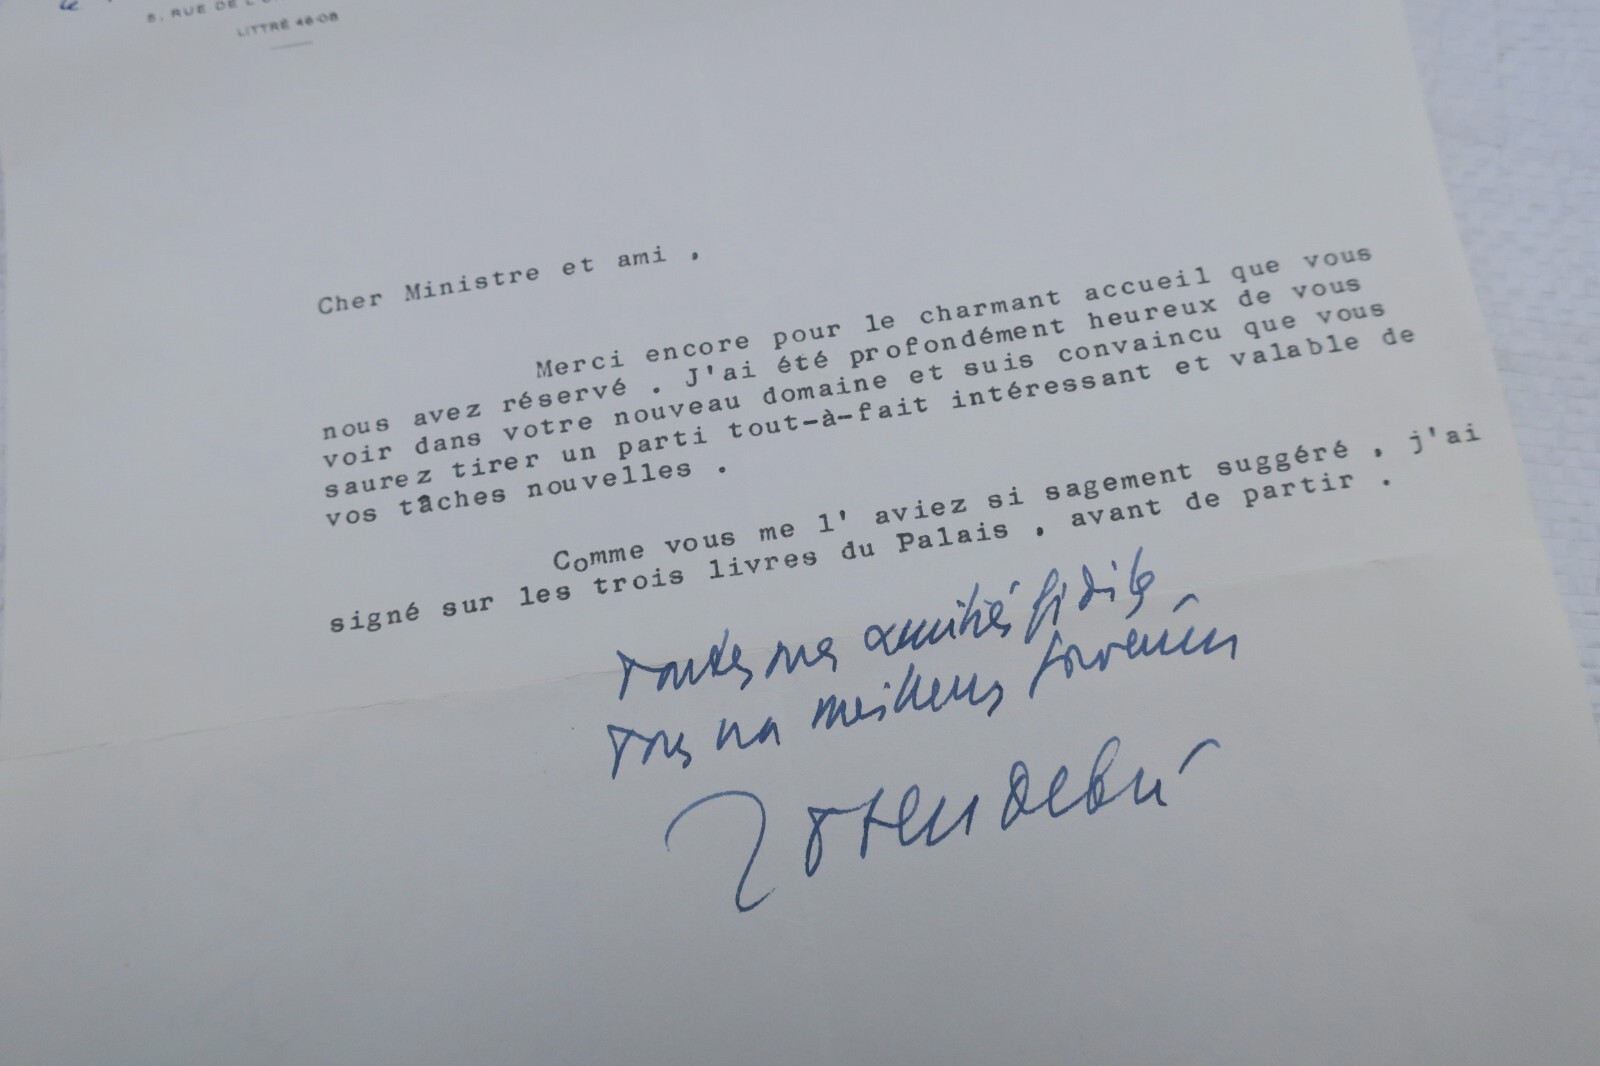 5, RUE DE L'
LITTRÉ 46-08
Cher Ministre et ami .
Merci encore pour le charmant accueil que vous
nous avez réservé . J'ai été profondément heureux de vous
voir dans votre nouveau domaine et suis convaincu que vous
saurez tirer un parti tout-à-fait intéressant et valable de
vos tâches nouvelles .
Comme vous me l' aviez si sagement suggéré , j'ai
signé sur les trois livres du Palais , avant de partir .
Toutes mes amitiés fidèles
tous mes meilleurs souvenirs